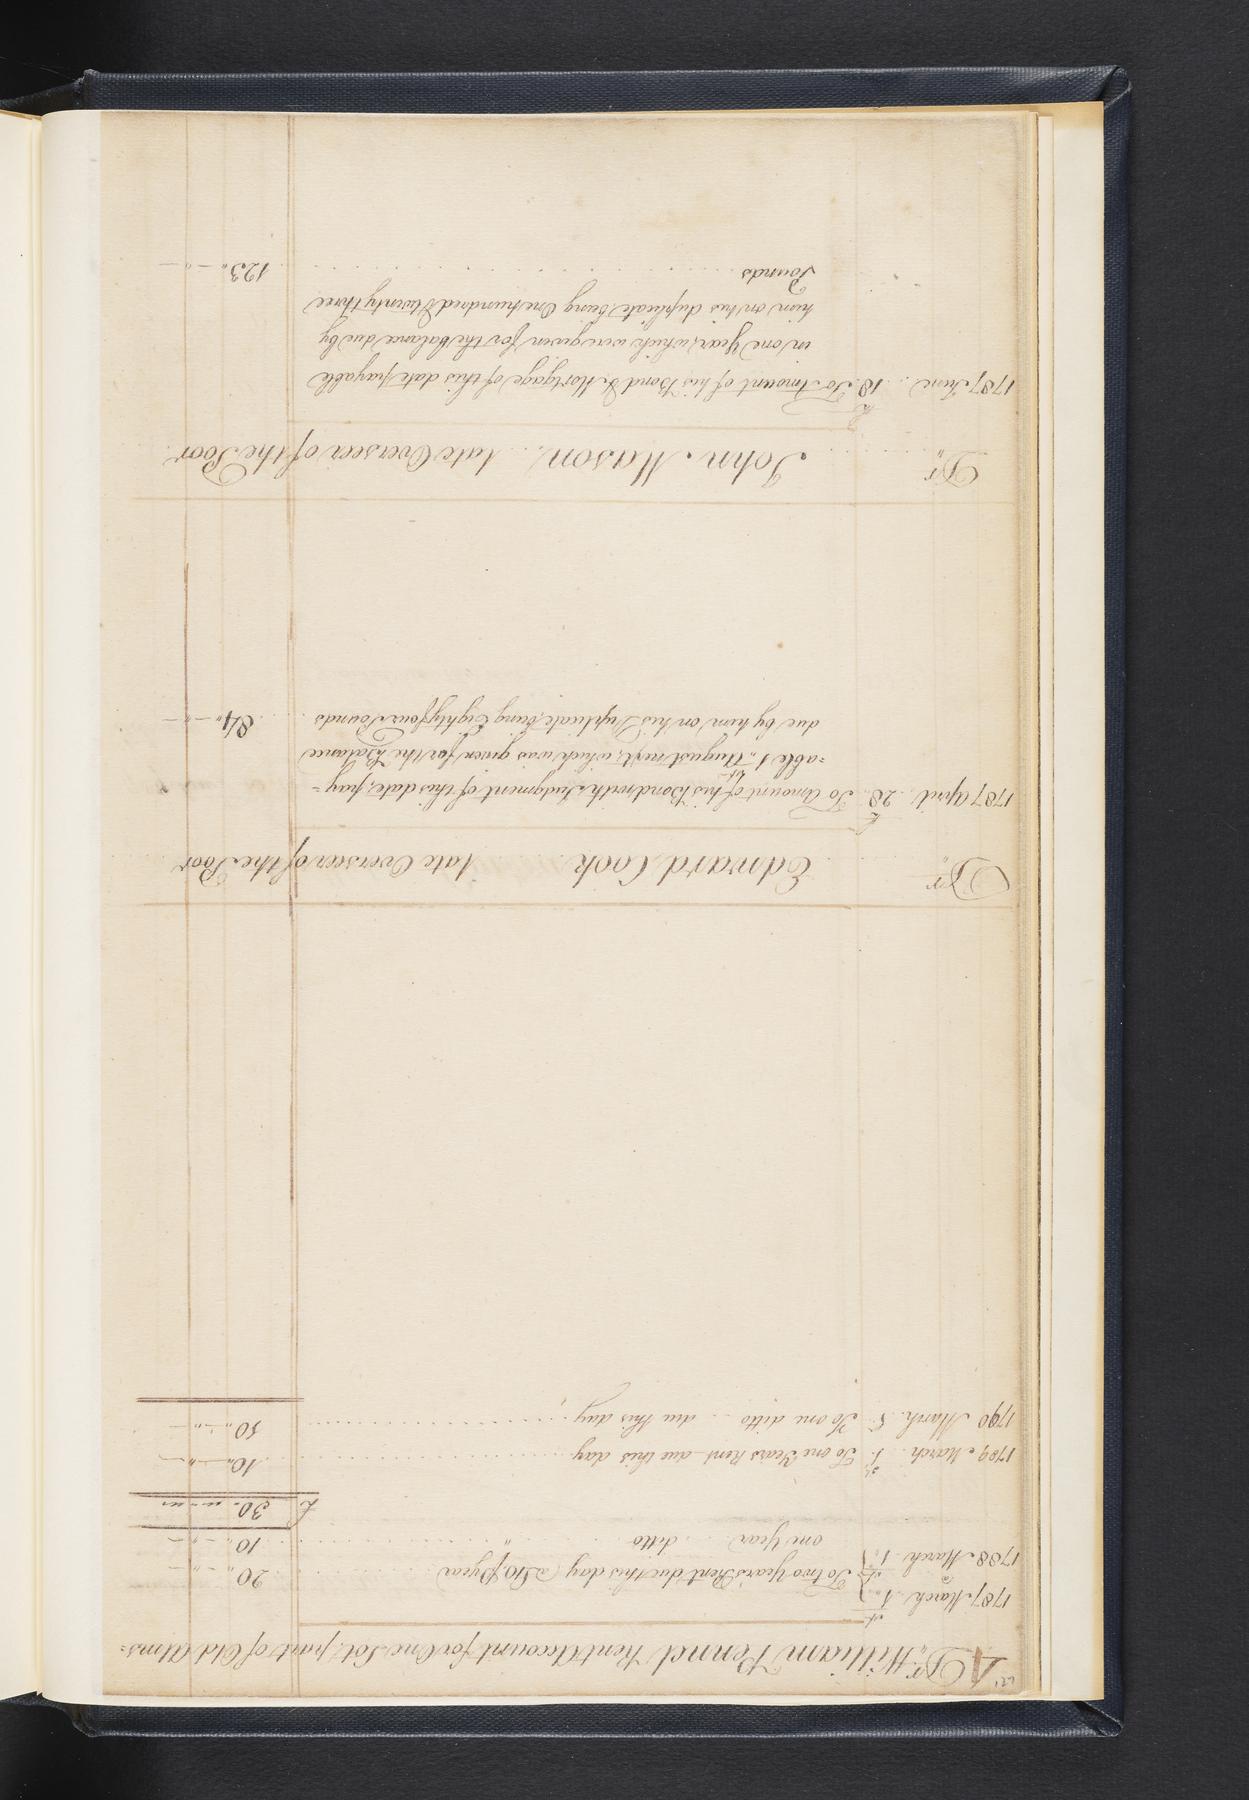 Dr,, William Pennel Rent Account for One Lot, part of Old Alms=
1787 March 1st To two Years Rent due this day @ £10 p year 20,,—,,—
1788 March 1st one Year ditto ,, 10,,—,,—
£ 30,,—,,—
1789 March 1st To one Years Rent due this day 10,,—,,—
1790 March To one ditto due this day 10,,—,,—
Dr,, Edward Cook late Overseer of the Poor
1787 April 28 To Amount of his Bond with Judgment of this date, pay-
=able 1st August next, which was given for the Balance
due by him on his Duplicate, being Eighty four Pounds 84,,—,,—
Dr,, John Mason, late Overseer of the Poor
1787 June 18 To Amount of his Bond & Mortgage of this date payable
in one Year, which were given for the balance due by
him on his duplicate, being One hundred & twenty three
Pounds 123,,—,,—